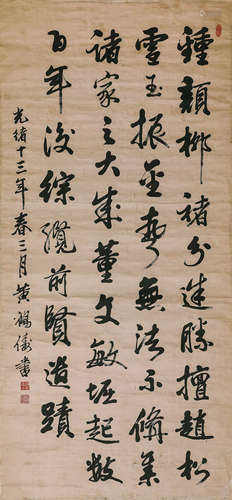 鍾顏柳褚分勝擅趙松
雪玉振金聲無法不備集
諸家之大成董文敏崛起數
百年後綜攬前賢遺蹟
光緒十三年春三月黃書